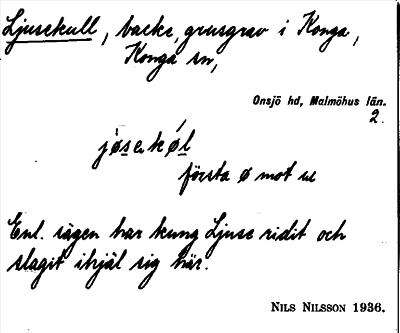 Ljusekull, backe, grusgrav i Konga,
Konga sn,
Onsjö hd, Malmöhus län.
2.
jø̀sekǿl
första ø mot u
Enl. sägen har kung Ljuse ridit och
slagit ihjäl sig här.
NILS NILSSON 1936.